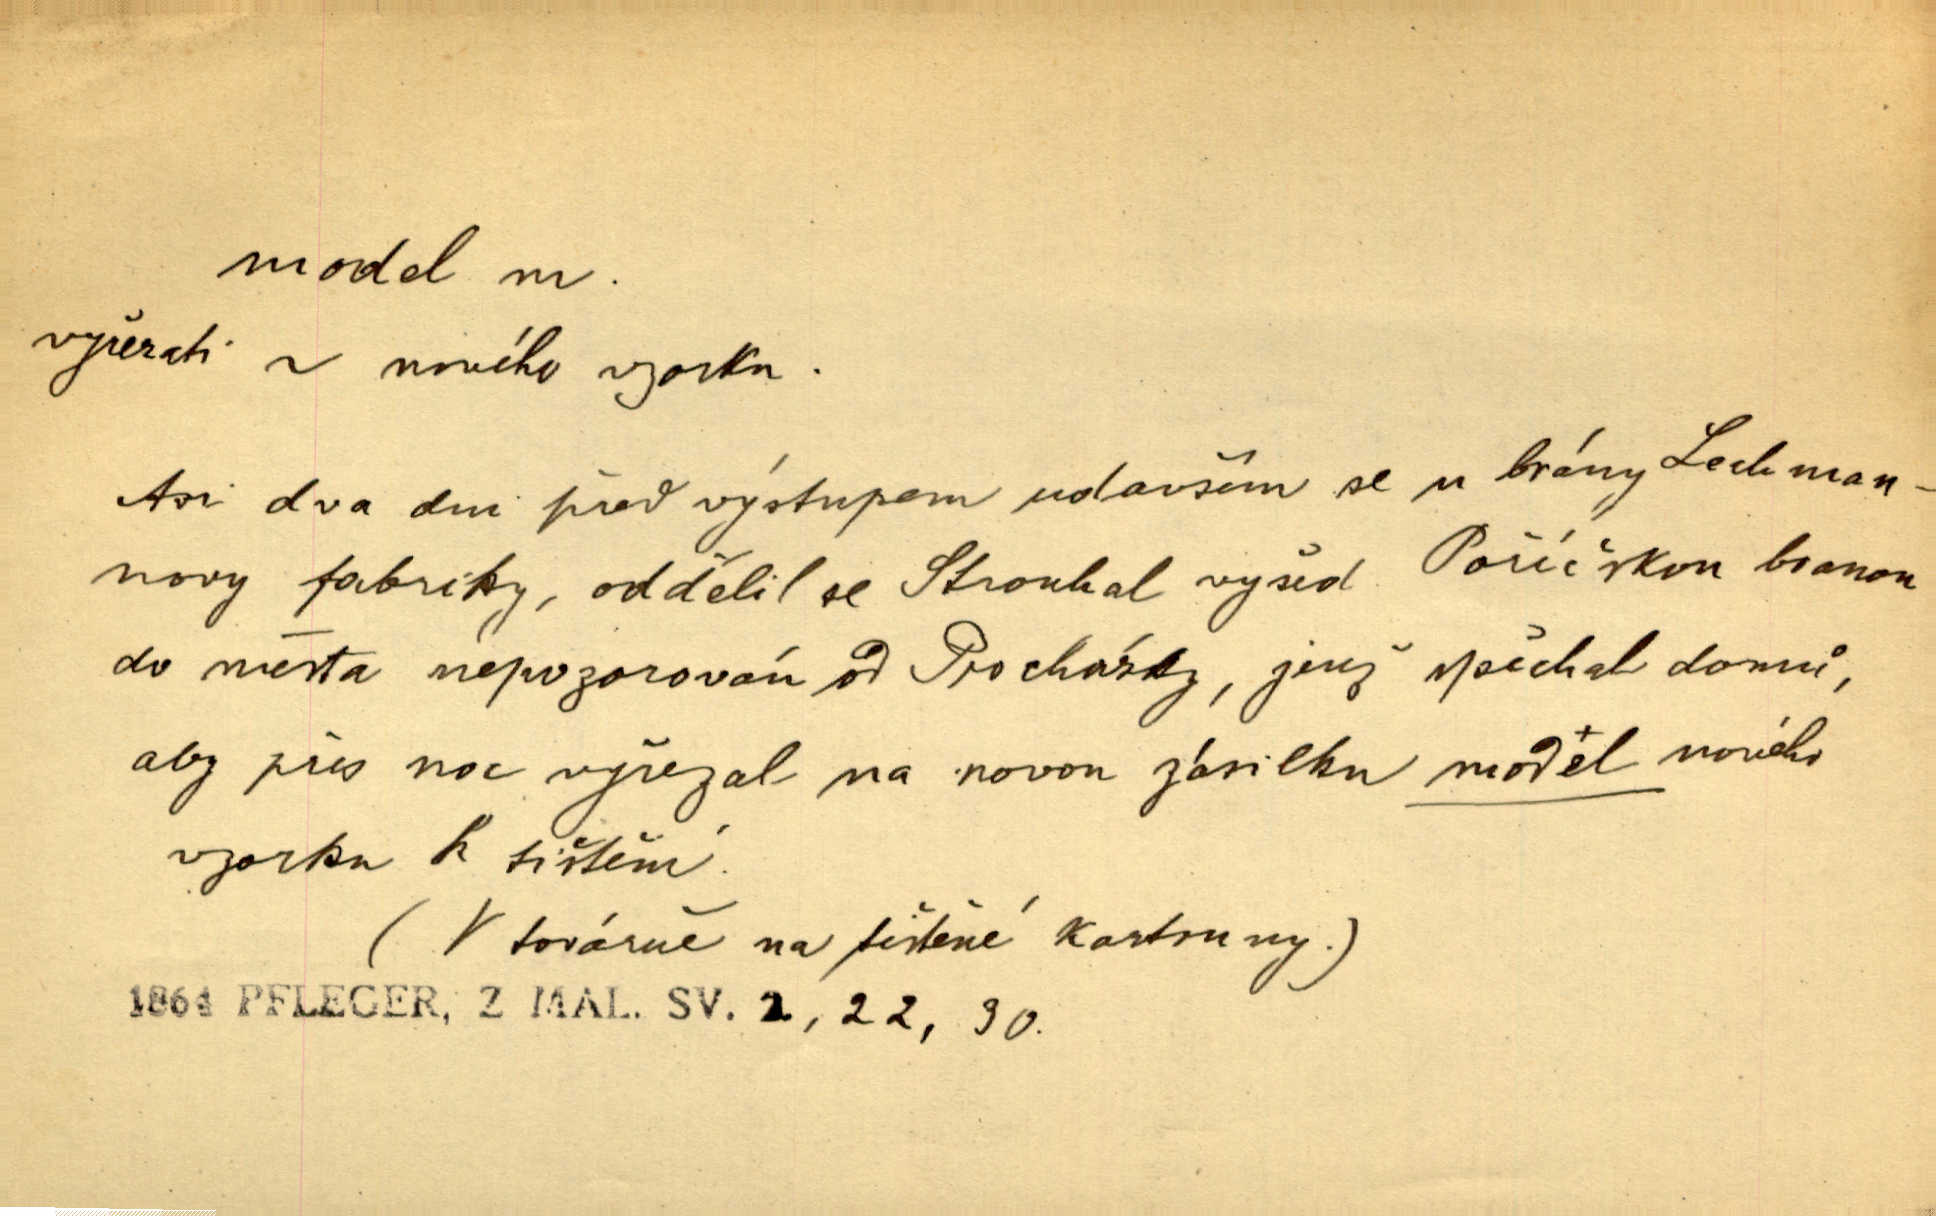 model m.
vyřezati ~ nového vzorku.
Asi dva dni před výstupem udavším se u brány Lechman-
novy fabriky, oddělil se Strouhal vyšed Poříčskou branou
do města nepozorován od Procházky, jenž spěchal domů,
aby přes noc vyřezal na novou zásilku model nového
vzorku k tištění.
(V továrně na tištěné kartouny.)
1864 PFLEGER, Z MAL. SV. 2, 22, 30.